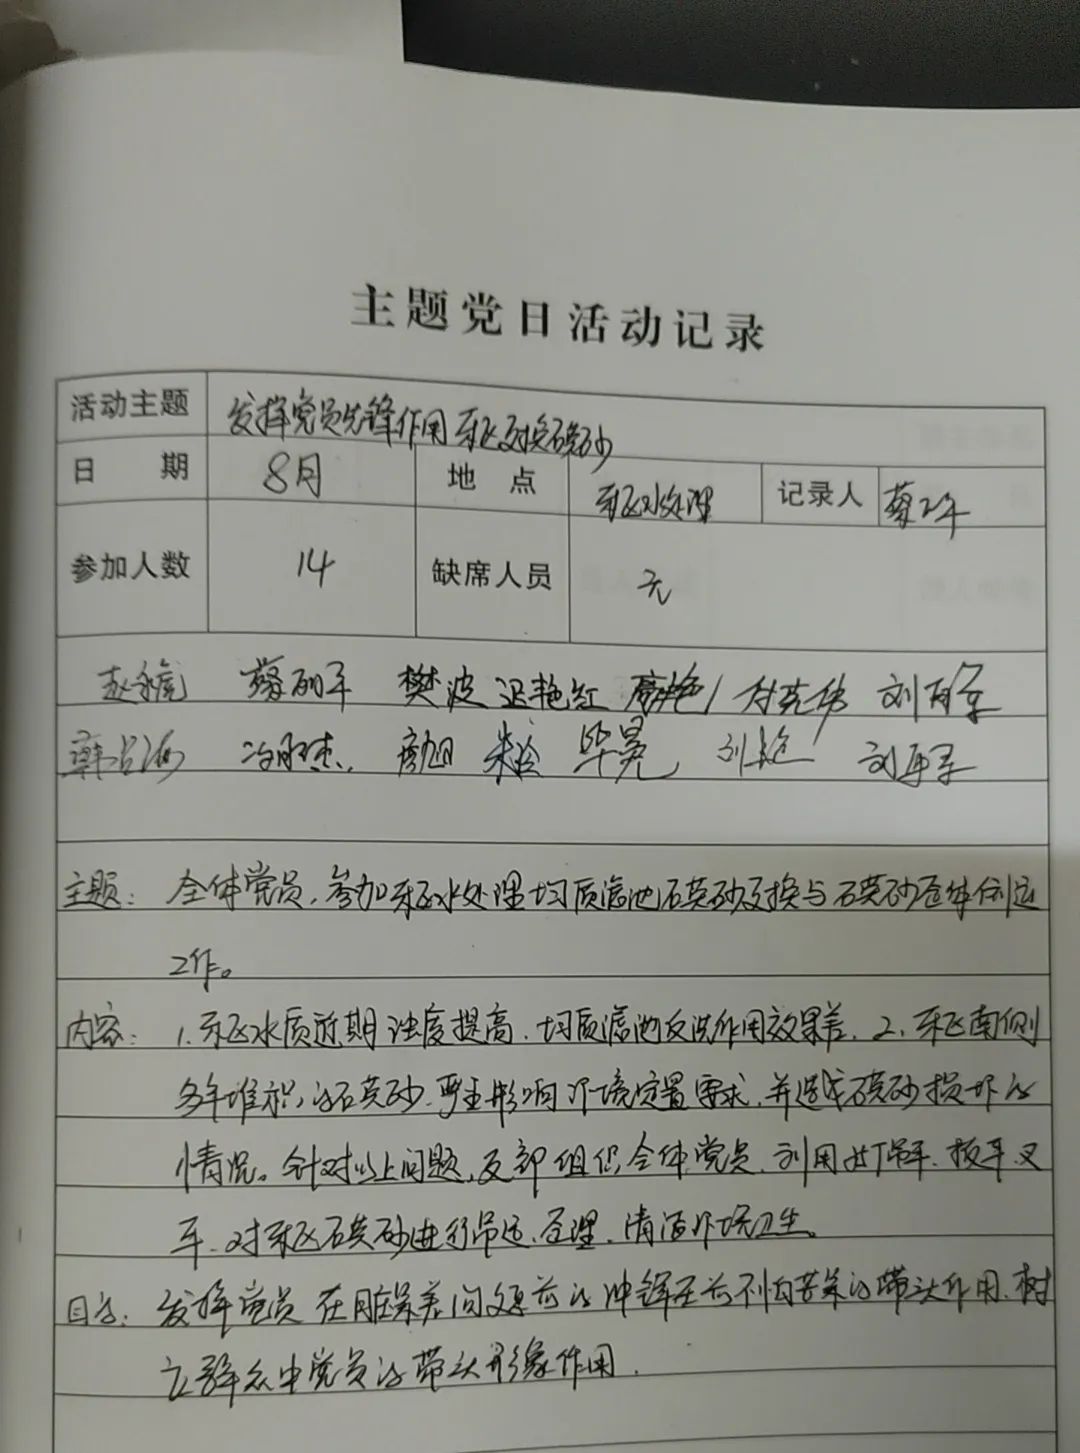 主题党日活动记录
活动主题 发挥党员先锋作用 东区更换石英砂
日 期 8月 地 点 东区水处理 记录人 蔡
参加人数 14 缺席人员 无
樊波 迟艳红 付克伟 刘
毕晃 刘艳 刘军
主题：全体党员，参加东区水处理均质滤池石英砂更换与石英砂整体倒运
工作。
内容：1.东区水质近期浊度提高，均质滤池反洗作用效果差，2、东区南侧
多年堆积的石英砂，严重影响环境定置要求，并造成石英砂损坏的
情况。针对以上问题，支部组织全体党员，利用吊车、板车、叉
车、对东区石英砂进行吊运、整理、清洁环境卫生。
目的：发挥党员在脏累差问题前的冲锋在前不怕苦累的带头作用，树
立群众中党员的带头形象作用.